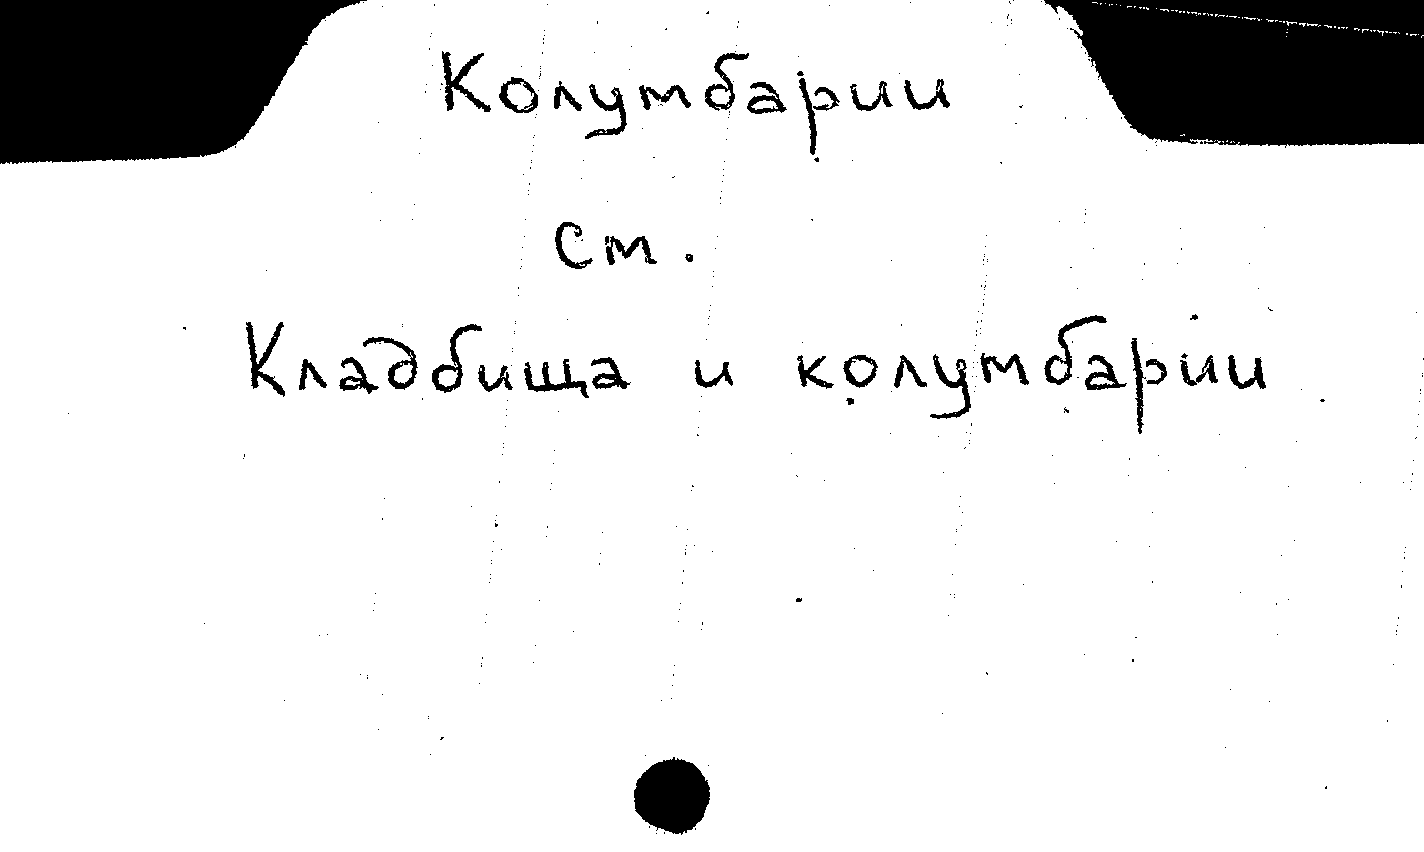 Колумбарии
см.
Кладбища и колумбарии